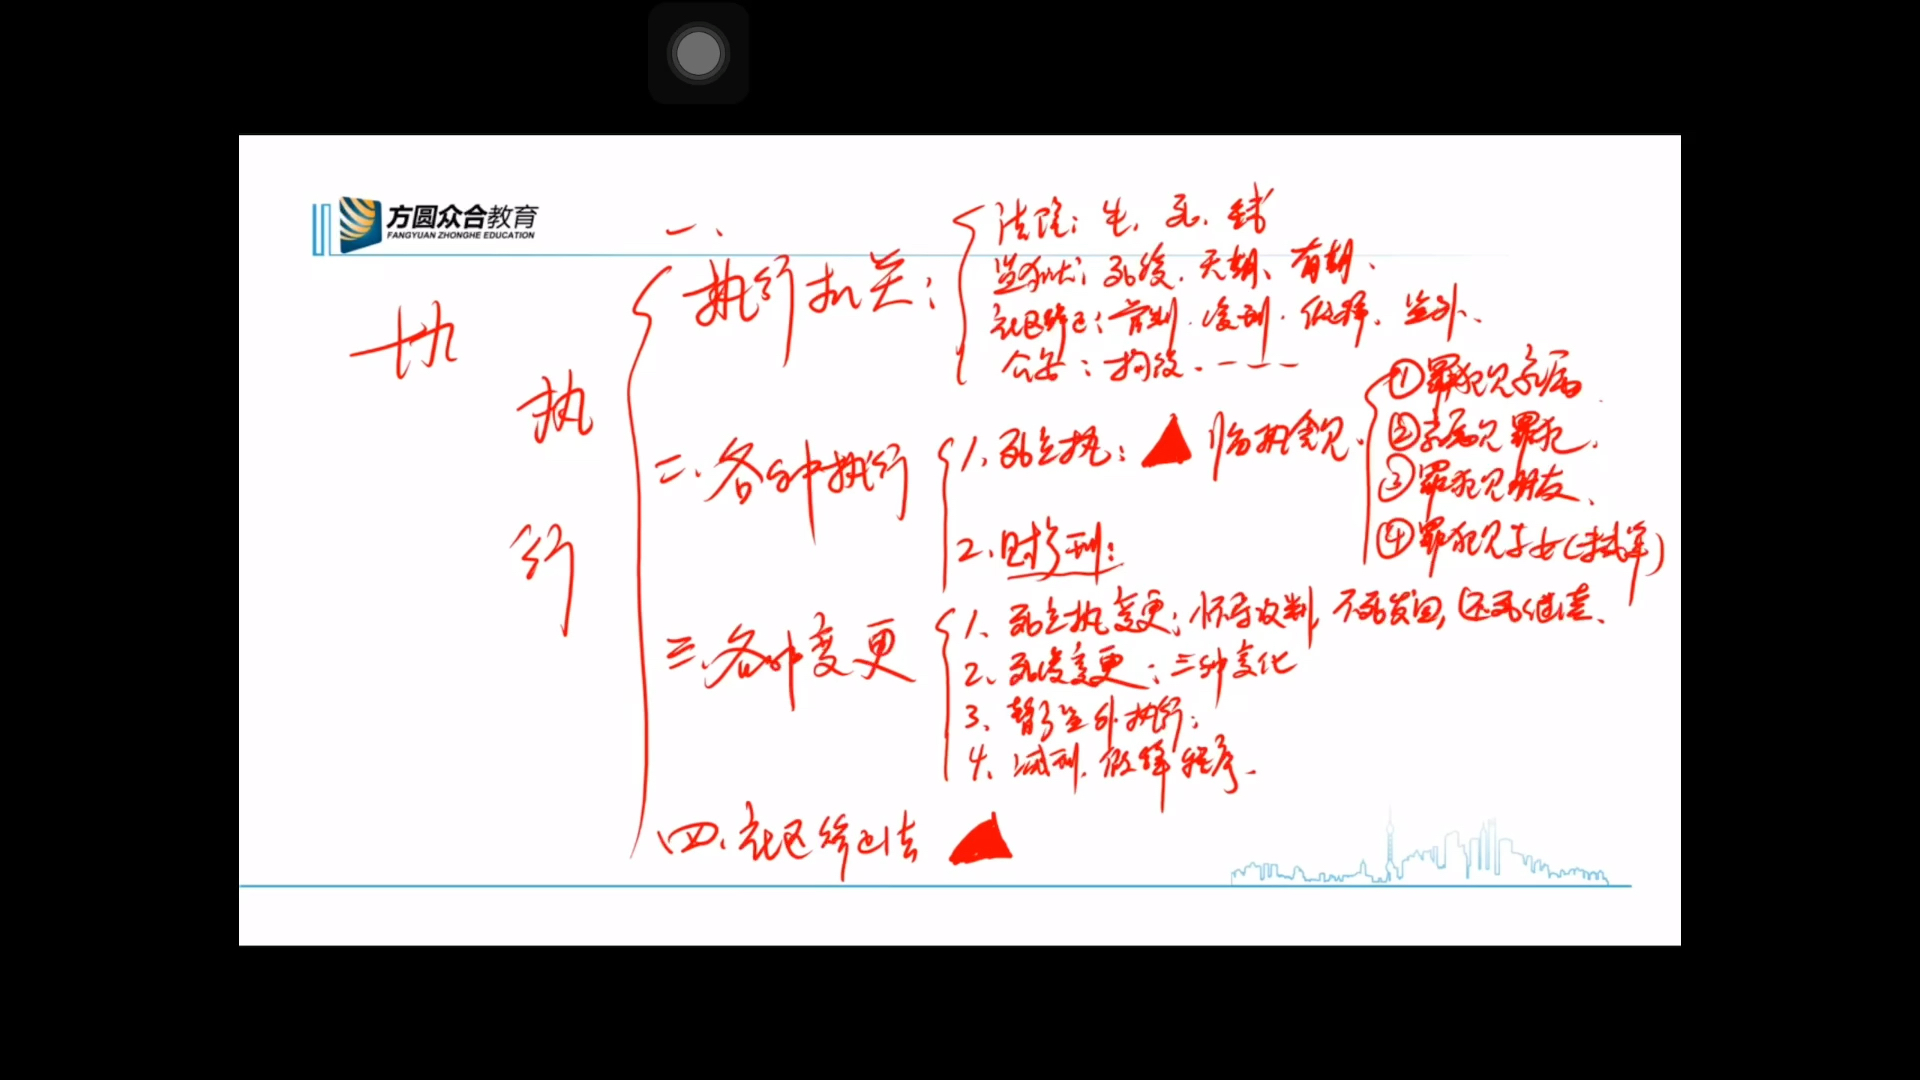 方圆众合教育
FANGYUAN ZHONGHE EDUCATION
执行
一、执行机关：
法院：生、死、钱
监狱：死缓、无期、有期、
社区矫正：管制、缓刑、假释、监外、
公安：拘役、
二、各种执行
1、死立执：▲ 临执会见、
①罪犯见亲属
②亲属见罪犯、
③罪犯见朋友、
④罪犯见子女(未成年)
2、财产刑：
三、各种变更
1、死立执变更：怀孕改判，不死发回，还死继续、
2、死缓变更：三种变化
3、暂予监外执行：
4、减刑、假释程序、
四、社区矫正法 ▲